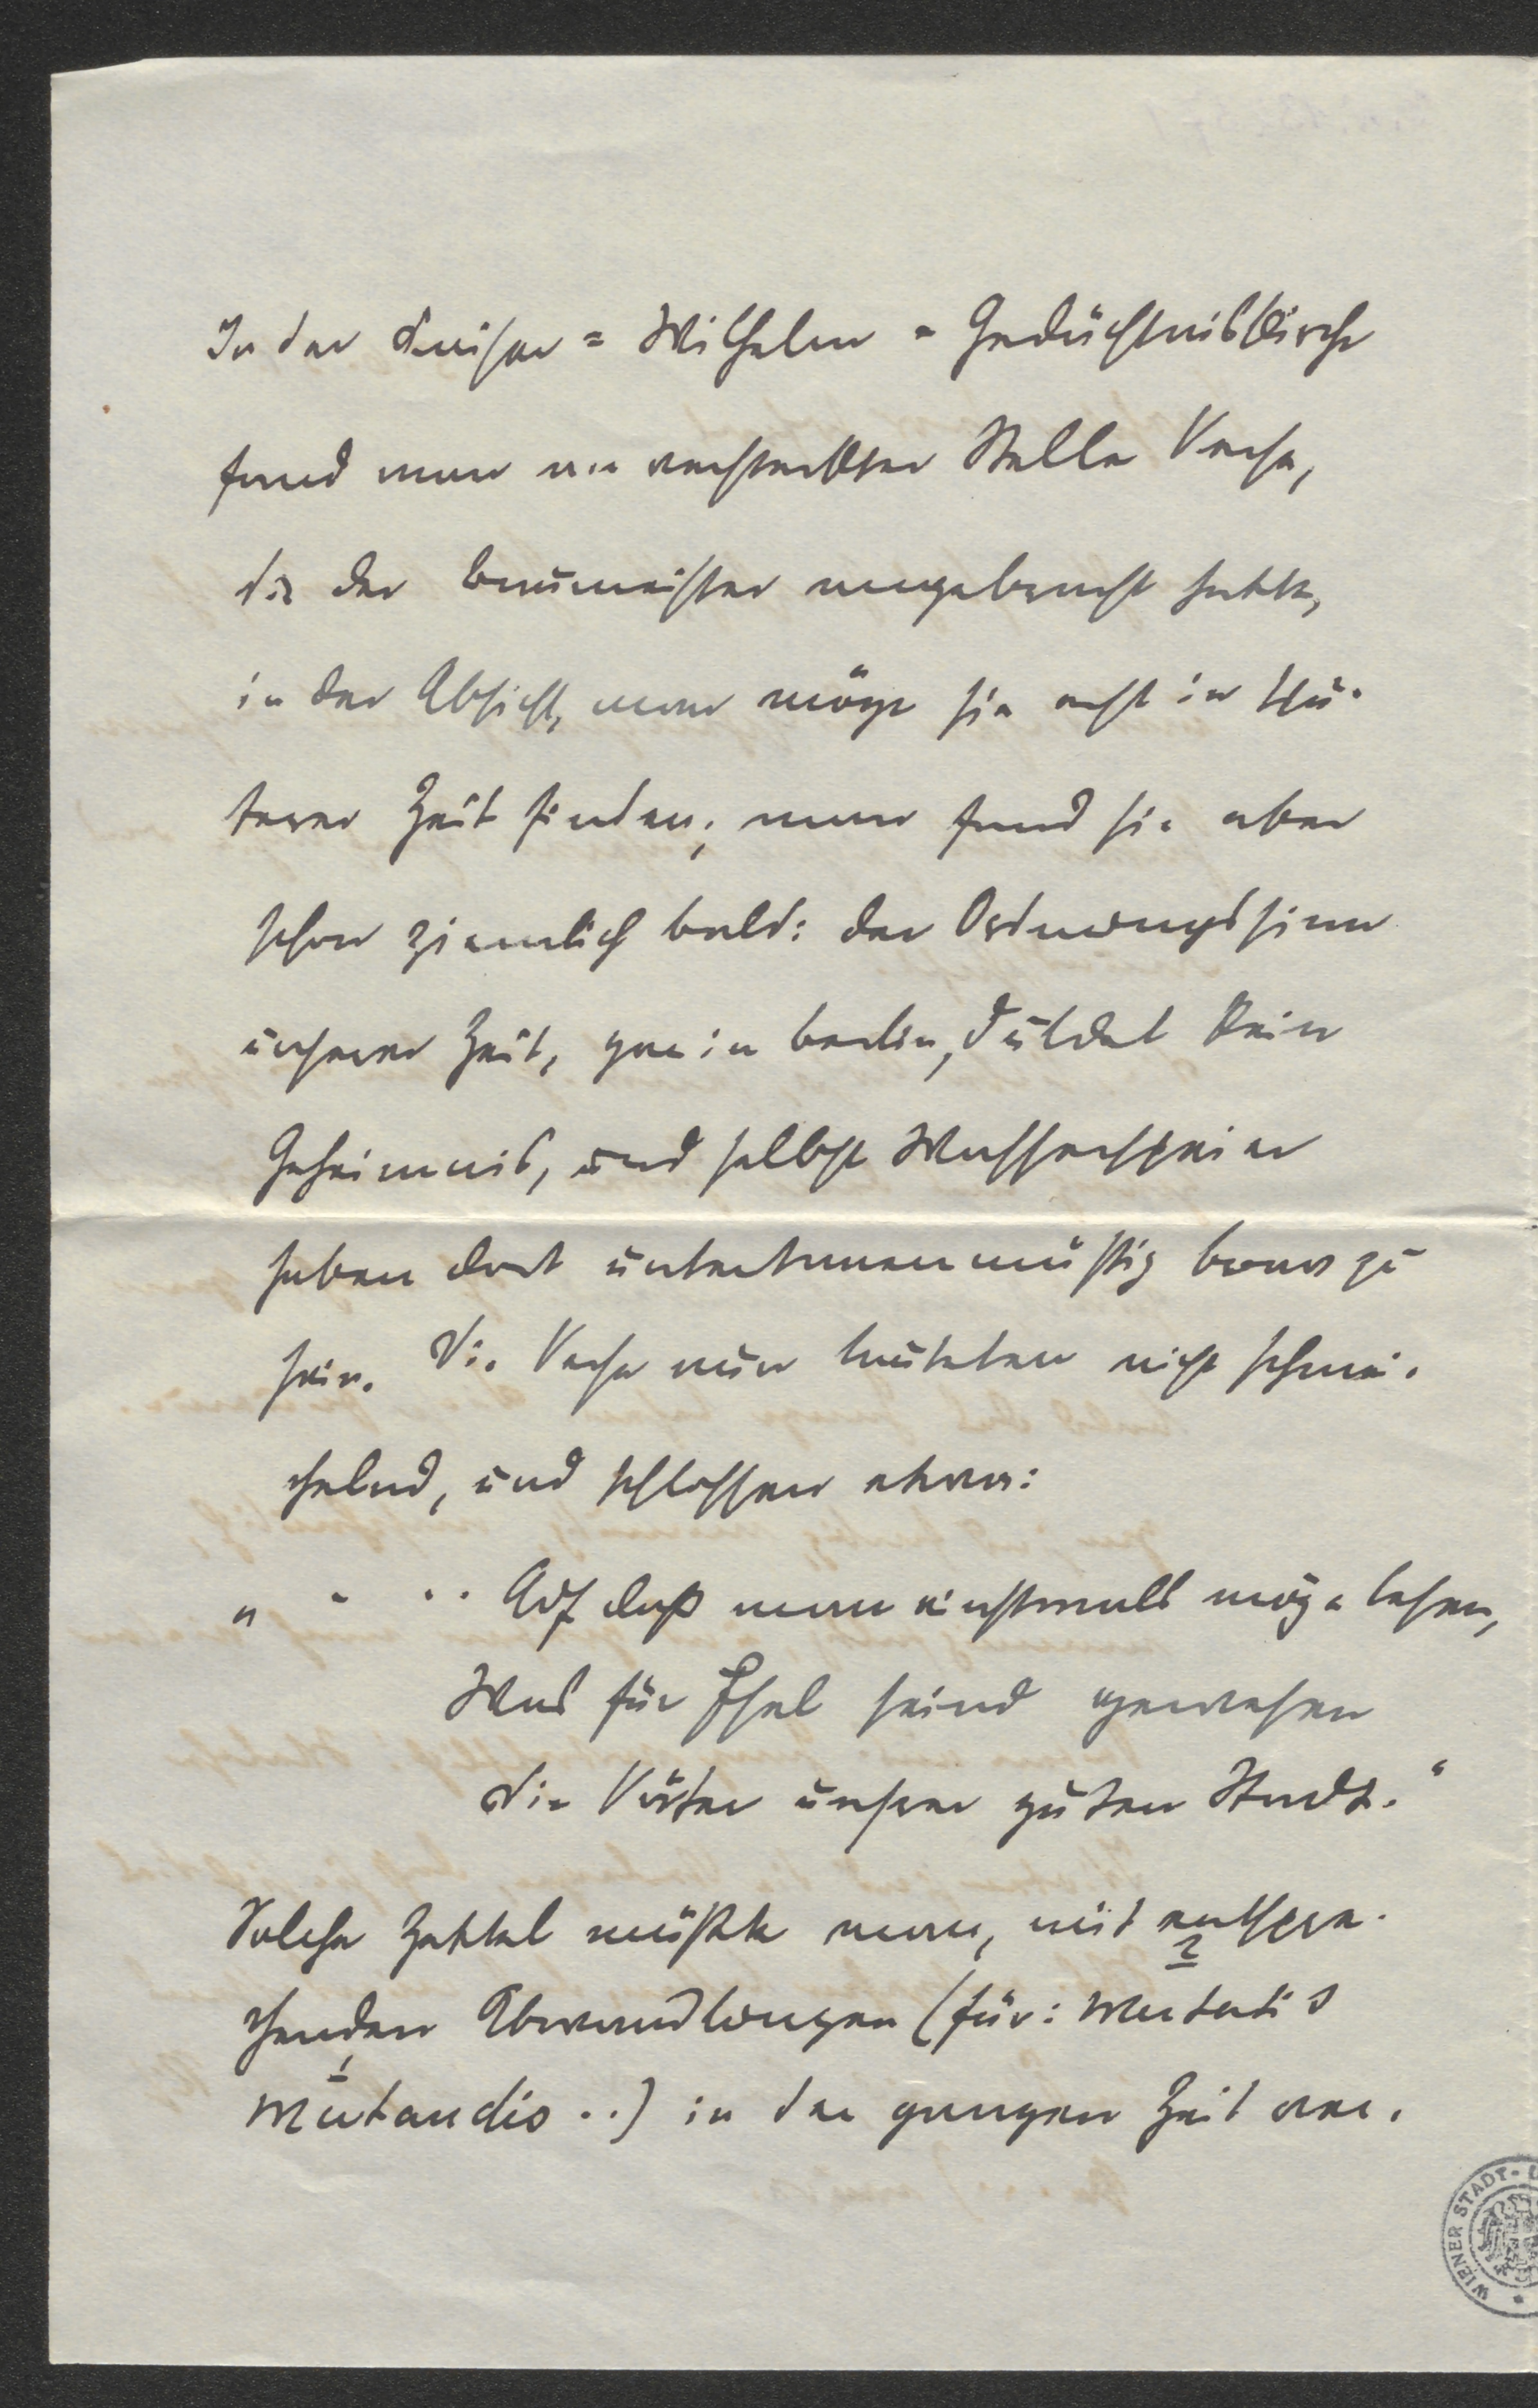 In der Kaiser = Wilhelm = Gedächtniskirche
fand man an versteckter Stelle Verse,
die der Baumeister angebracht hatte,
in der Absicht, man möge sie erst in spä-
terer Zeit finden; man fand sie aber
schon ziemlich bald: der Ordnungssinn
unserer Zeit, gar in Berlin, duldet kein
Geheimnis, und selbst Wasserspeier
haben dort untertanenmäßig brav zu
sein. Die Verse nun lauteten nicht schmei-
chelnd, und schlossen etwa:
" - . . Auf daß man einstmals möge lesen,
Was für Esel seind gewesen
die Väter unsrer guten Stadt."
Solche Zettel müßte man, mit entspre-
chenden Abwandlungen (für: mutatis
mutandis ..) in der ganzen Zeit ver-
WIENER STADT-